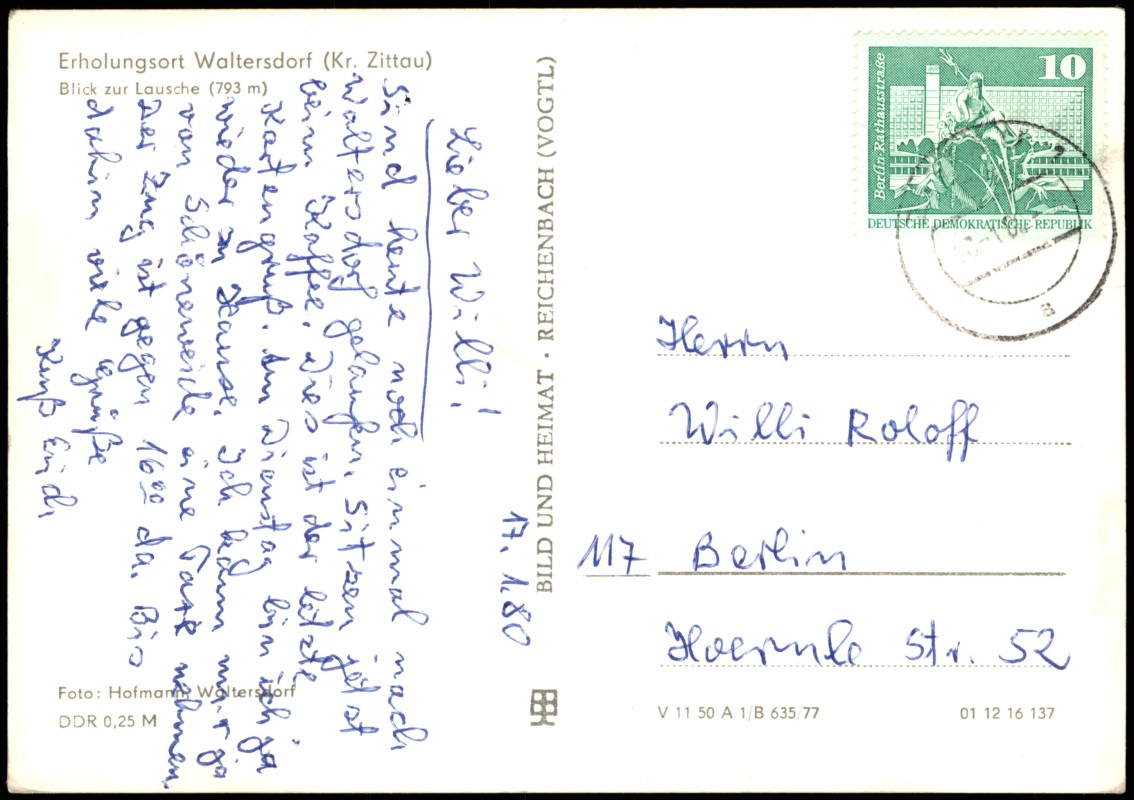 Erholungsort Waltersdorf (Kr. Zittau)
Blick zur Lausche (793 m)
17. 1. 80
Lieber Willi!
Sind heute noch einmal nach
Waltersdorf gelaufen. Sitzen jetzt
beim Kaffee. Dies ist der letzte
Kartengruß. Am Dienstag bin ich ja
wieder zu Hause. Ich kann mir ja
von Schöneweide eine Taxe nehmen.
Der Zug ist gegen 16 00 da. Bis
dahin viele Grüße
Kuß
Foto: Hofmann, Waltersdorf
DDR 0,25 M
BILD UND HEIMAT · REICHENBACH (VOGTL)
10
Berlin-Rathausstraße
DEUTSCHE DEMOKRATISCHE REPUBLIK
a
Herrn
Willi Roloff
117 Berlin
Hoernle Str. 52
V 11 50 A 1/B 635/77
01 12 16 137